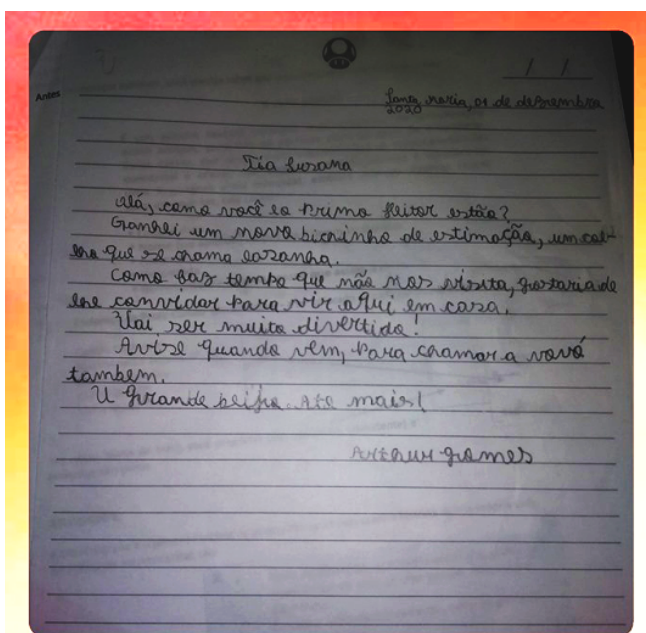 Antes
Santa maria, 01 de dezembro
2020
Tia Susana
Olá, como você eo primo Heitor estão?
Ganhei um novo bichinho de estimação, um coe-
lho que se chama
Como faz tempo que não nos visita, gostaria de
lhe convidar para vir aqui em casa.
Vai ser muito divertido!
Avise quando vem, para chamar a vovó
tambem.
U grande beijo. Até mais!
Arthur gomes